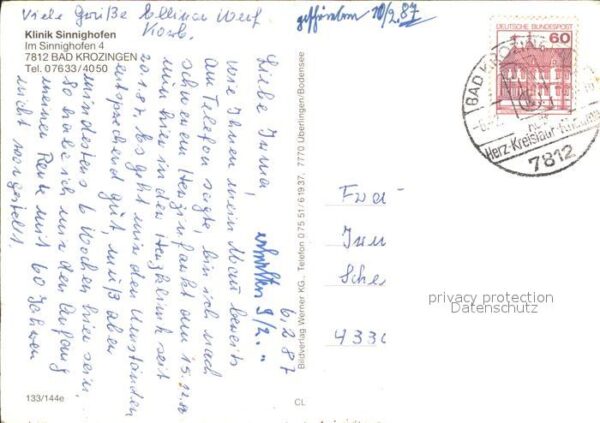 Viele Grüße
Klinik Sinnighofen
Im Sinnighofen 4
7812 BAD KROZINGEN
Tel. 07633/4050
6.2.87
Liebe Irma,
wie Ihnen mein Mann bereits
am Telefon sagte, bin ich nach
schwerem Herzinfarkt am 15.12.86
nun hier in der Herzklinik seit
20.1.87. Es geht mir den Umständen
entsprechend gut, muß aber
mindestens 6 Wochen hier sein.
So habe ich mir den Anfang
meiner Rente mit 60 Jahren
nicht vorgestellt.
erhalten 9/2.
133/144e
CL
Bildverlag Werner KG., Telefon 0 75 51/6 19 37, 7770 Überlingen/Bodensee
10/2.87
DEUTSCHE BUNDESPOST
60
BAD KROZINGEN
Herz-Kreislauf
7812
Frau
Sche
4330
privacy protection
Datenschutz